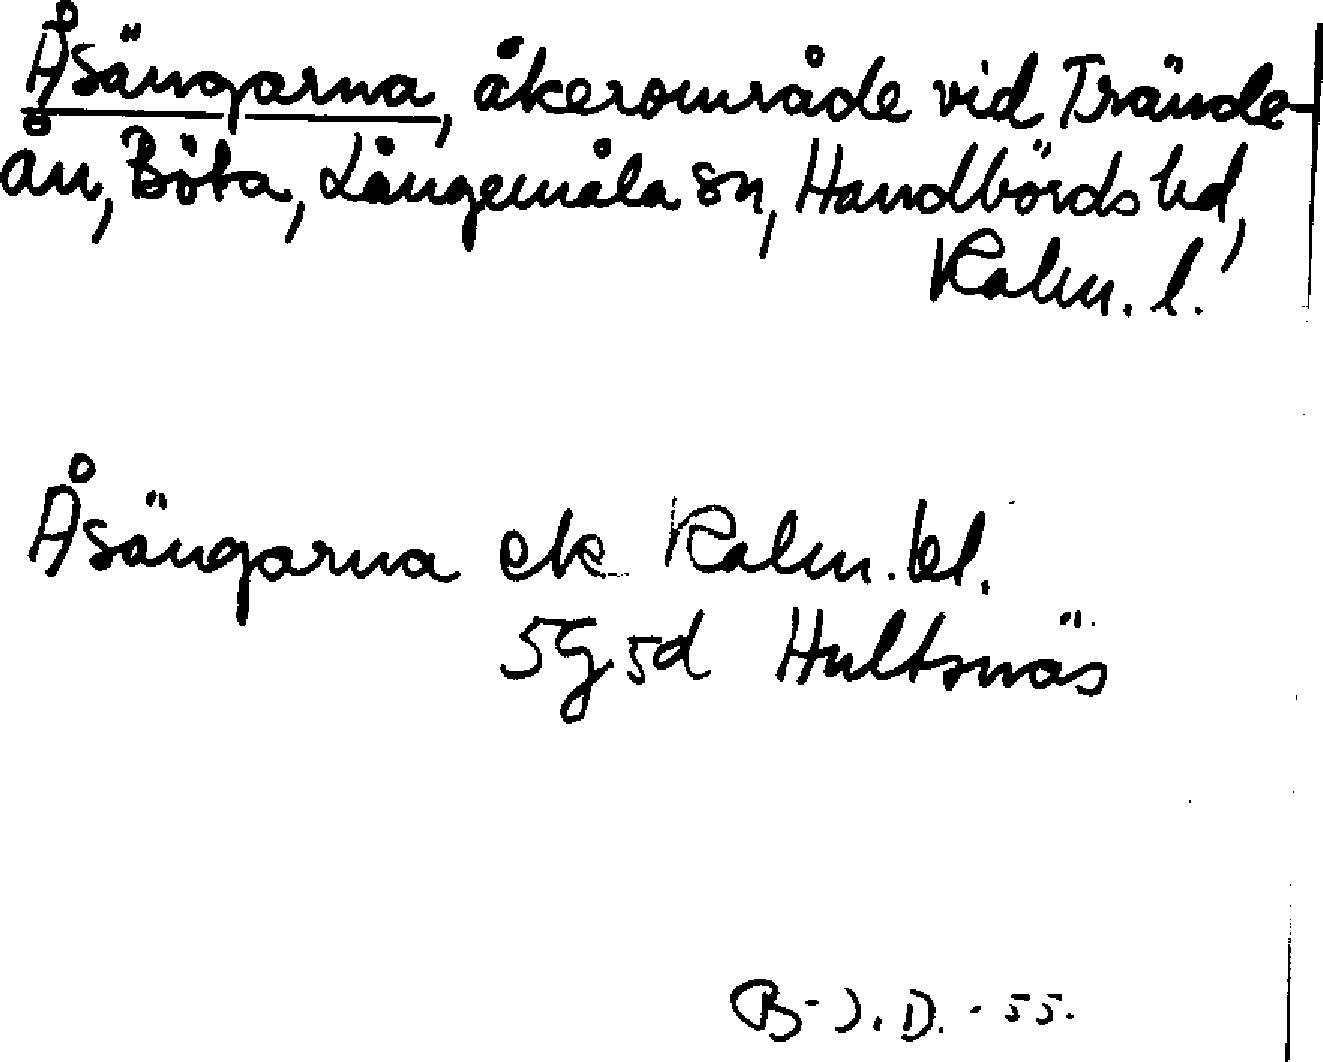 Åsängarna, åkerområde vid Trände-
ån, Böta, Långemåla sn, Handbörds hd,
Kalm. l.
Åsängarna ek Kalm. bl.
5G5d Hultsnäs
B-J. D. - 55.